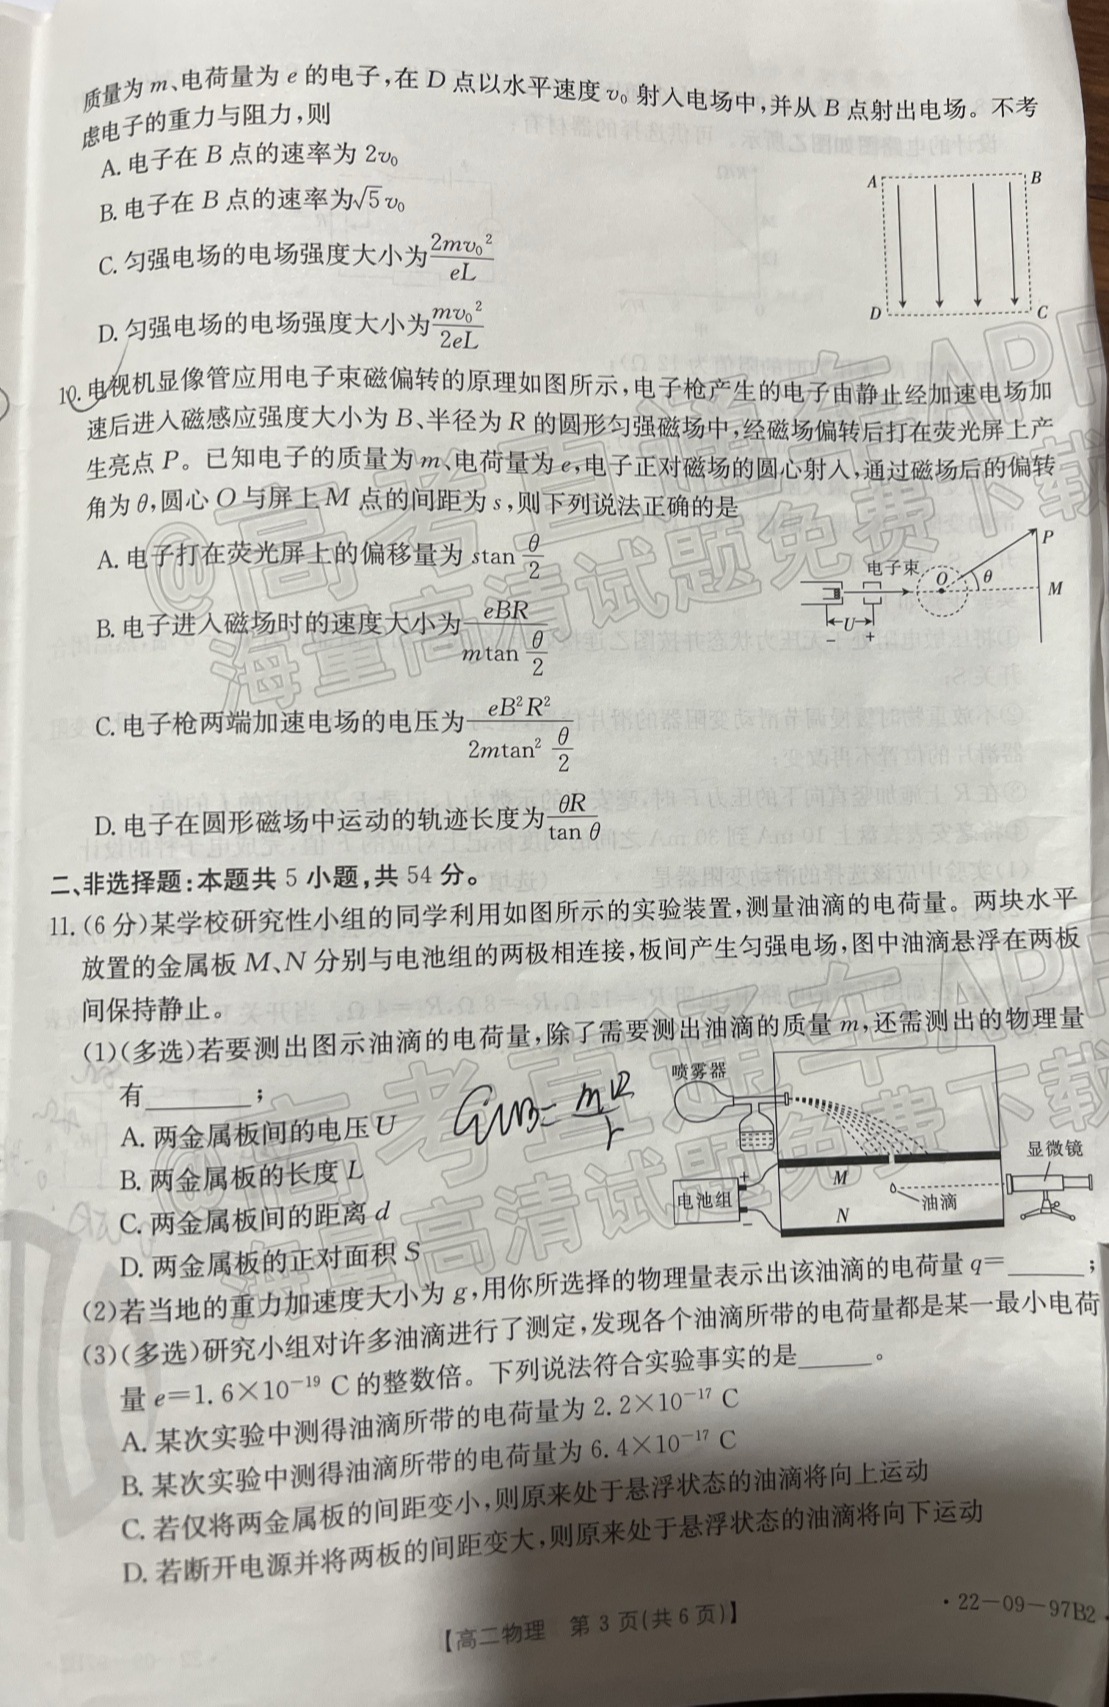 质量为 m、电荷量为 e 的电子,在 D 点以水平速度 v₀ 射入电场中,并从 B 点射出电场。不考
虑电子的重力与阻力,则
A. 电子在 B 点的速率为 2v₀
B. 电子在 B 点的速率为√5 v₀
C. 匀强电场的电场强度大小为 2mv₀²/eL
D. 匀强电场的电场强度大小为 mv₀²/2eL
A B
D C
10. 电视机显像管应用电子束磁偏转的原理如图所示,电子枪产生的电子由静止经加速电场加
速后进入磁感应强度大小为 B、半径为 R 的圆形匀强磁场中,经磁场偏转后打在荧光屏上产
生亮点 P。已知电子的质量为 m、电荷量为 e,电子正对磁场的圆心射入,通过磁场后的偏转
角为 θ,圆心 O 与屏上 M 点的间距为 s,则下列说法正确的是
A. 电子打在荧光屏上的偏移量为 stan θ/2
B. 电子进入磁场时的速度大小为 eBR/(mtan θ/2)
C. 电子枪两端加速电场的电压为 eB²R²/(2mtan² θ/2)
D. 电子在圆形磁场中运动的轨迹长度为 θR/tan θ
P
电子束 O θ M
U
− +
二、非选择题:本题共 5 小题,共 54 分。
11. (6 分)某学校研究性小组的同学利用如图所示的实验装置,测量油滴的电荷量。两块水平
放置的金属板 M、N 分别与电池组的两极相连接,板间产生匀强电场,图中油滴悬浮在两板
间保持静止。
(1)(多选)若要测出图示油滴的电荷量,除了需要测出油滴的质量 m,还需测出的物理量
有________;
A. 两金属板间的电压 U
B. 两金属板的长度 L
C. 两金属板间的距离 d
D. 两金属板的正对面积 S
喷雾器
显微镜
电池组 + −
M
N
油滴
(2)若当地的重力加速度大小为 g,用你所选择的物理量表示出该油滴的电荷量 q=______;
(3)(多选)研究小组对许多油滴进行了测定,发现各个油滴所带的电荷量都是某一最小电荷
量 e=1.6×10⁻¹⁹ C 的整数倍。下列说法符合实验事实的是______。
A. 某次实验中测得油滴所带的电荷量为 2.2×10⁻¹⁷ C
B. 某次实验中测得油滴所带的电荷量为 6.4×10⁻¹⁷ C
C. 若仅将两金属板的间距变小,则原来处于悬浮状态的油滴将向上运动
D. 若断开电源并将两板的间距变大,则原来处于悬浮状态的油滴将向下运动
【高二物理 第 3 页(共 6 页)】
·22-09-97B2·
@高考直通车APP
海量高清试题免费下载
@高考直通车APP
海量高清试题免费下载